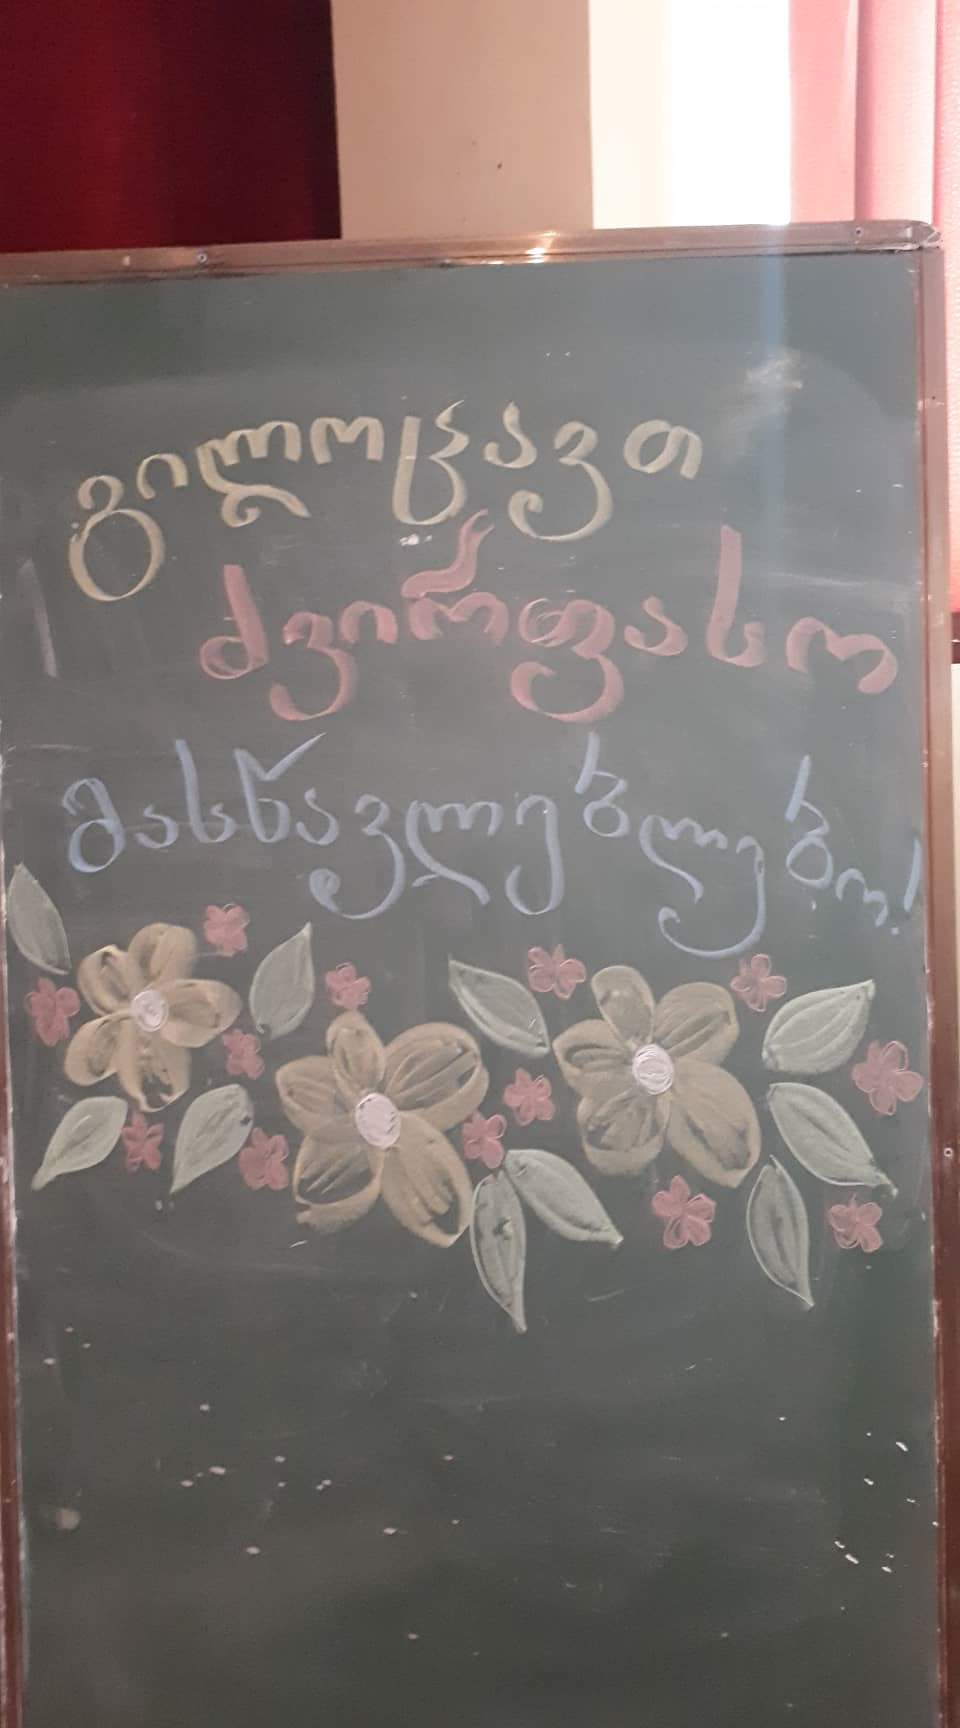 გილოცავთ
ძვირფასო
მასწავლებლებო!